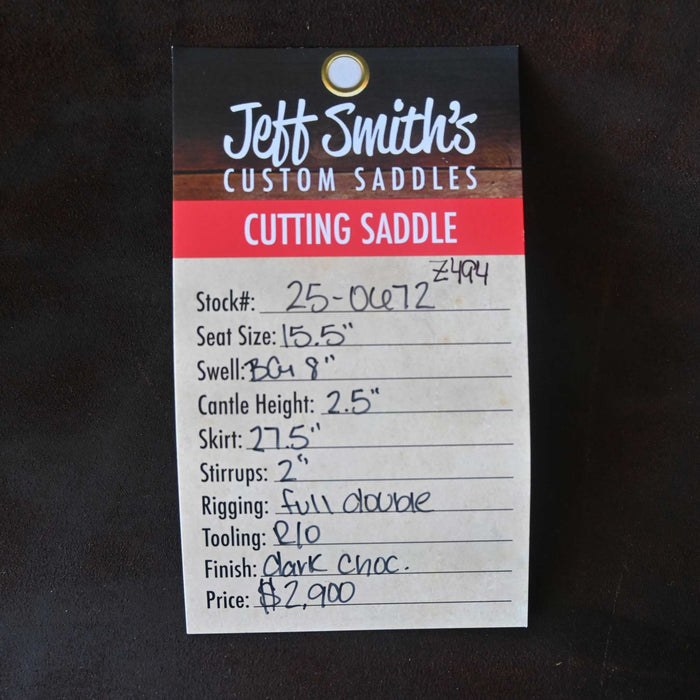 Jeff Smith's
CUSTOM SADDLES
CUTTING SADDLE
Z494
Stock#: 25-0672
Seat Size: 15.5"
Swell: BCH 8"
Cantle Height: 2.5"
Skirt: 27.5"
Stirrups: 2"
Rigging: full double
Tooling: R/O
Finish: dark choc.
Price: $2,900